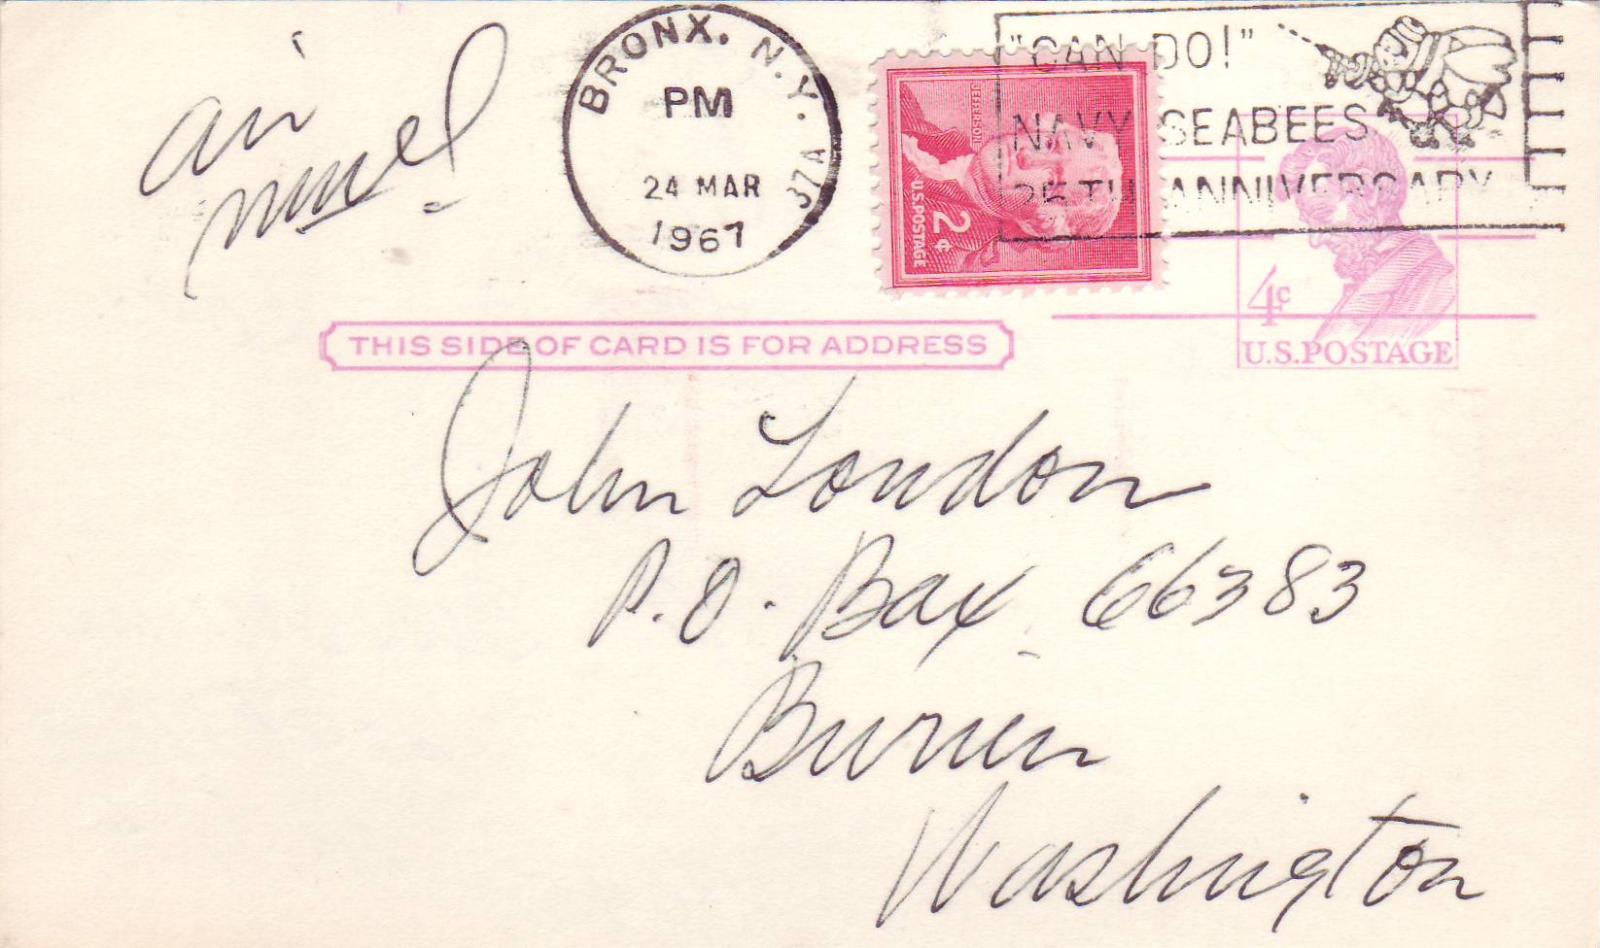 air
mail
BRONX, N.Y.
PM
24 MAR
1967
37A
"CAN DO!"
NAVY SEABEES
25TH ANNIVERSARY
JEFFERSON
2¢
U.S. POSTAGE
4c
U.S. POSTAGE
THIS SIDE OF CARD IS FOR ADDRESS
John London
P.O. Box 66383
Burien
Washington